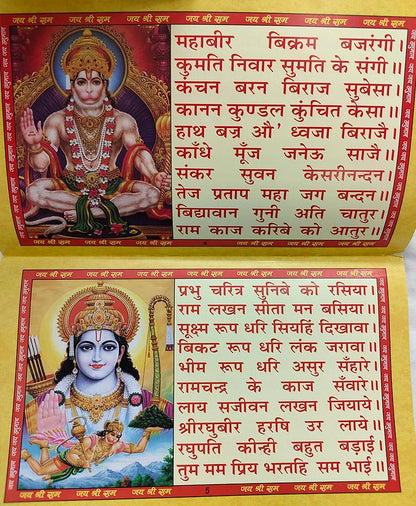 जय श्री राम जय श्री राम जय श्री राम जय श्री राम जय श्री राम जय श्री राम जय श्री राम
महाबीर बिक्रम बजरंगी।
कुमति निवार सुमति के संगी।।
कंचन बरन बिराज सुबेसा।
कानन कुण्डल कुंचित केसा।।
हाथ बज्र औ' ध्वजा बिराजै।
काँधे मूँज जनेऊ साजै।।
संकर सुवन केसरीनन्दन।
तेज प्रताप महा जग बन्दन।।
बिद्यावान गुनी अति चातुर।
राम काज करिबे को आतुर।।
जय श्री राम जय श्री राम जय श्री राम जय श्री राम जय श्री राम जय श्री राम जय श्री राम
जय श्री राम जय श्री राम जय श्री राम जय श्री राम जय श्री राम जय श्री राम जय श्री राम
प्रभु चरित्र सुनिबे को रसिया।
राम लखन सीता मन बसिया।।
सूक्ष्म रूप धरि सियहिं दिखावा।
बिकट रूप धरि लंक जरावा।।
भीम रूप धरि असुर सँहारे।
रामचन्द्र के काज सँवारे।।
लाय सजीवन लखन जियाये।
श्रीरघुबीर हरषि उर लाये।।
रघुपति कीन्ही बहुत बड़ाई।
तुम मम प्रिय भरतहि सम भाई।।
जय श्री राम जय श्री राम जय श्री राम जय श्री राम जय श्री राम जय श्री राम जय श्री राम
5